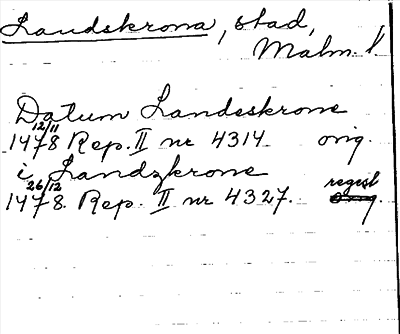 Landskrona, stad,
Malm. l
Datum Landeskrone
12/11
1478 Rep. II nr 4314 orig.
i Landzkrone
26/12 regest
1478. Rep. II nr 4327. orig.